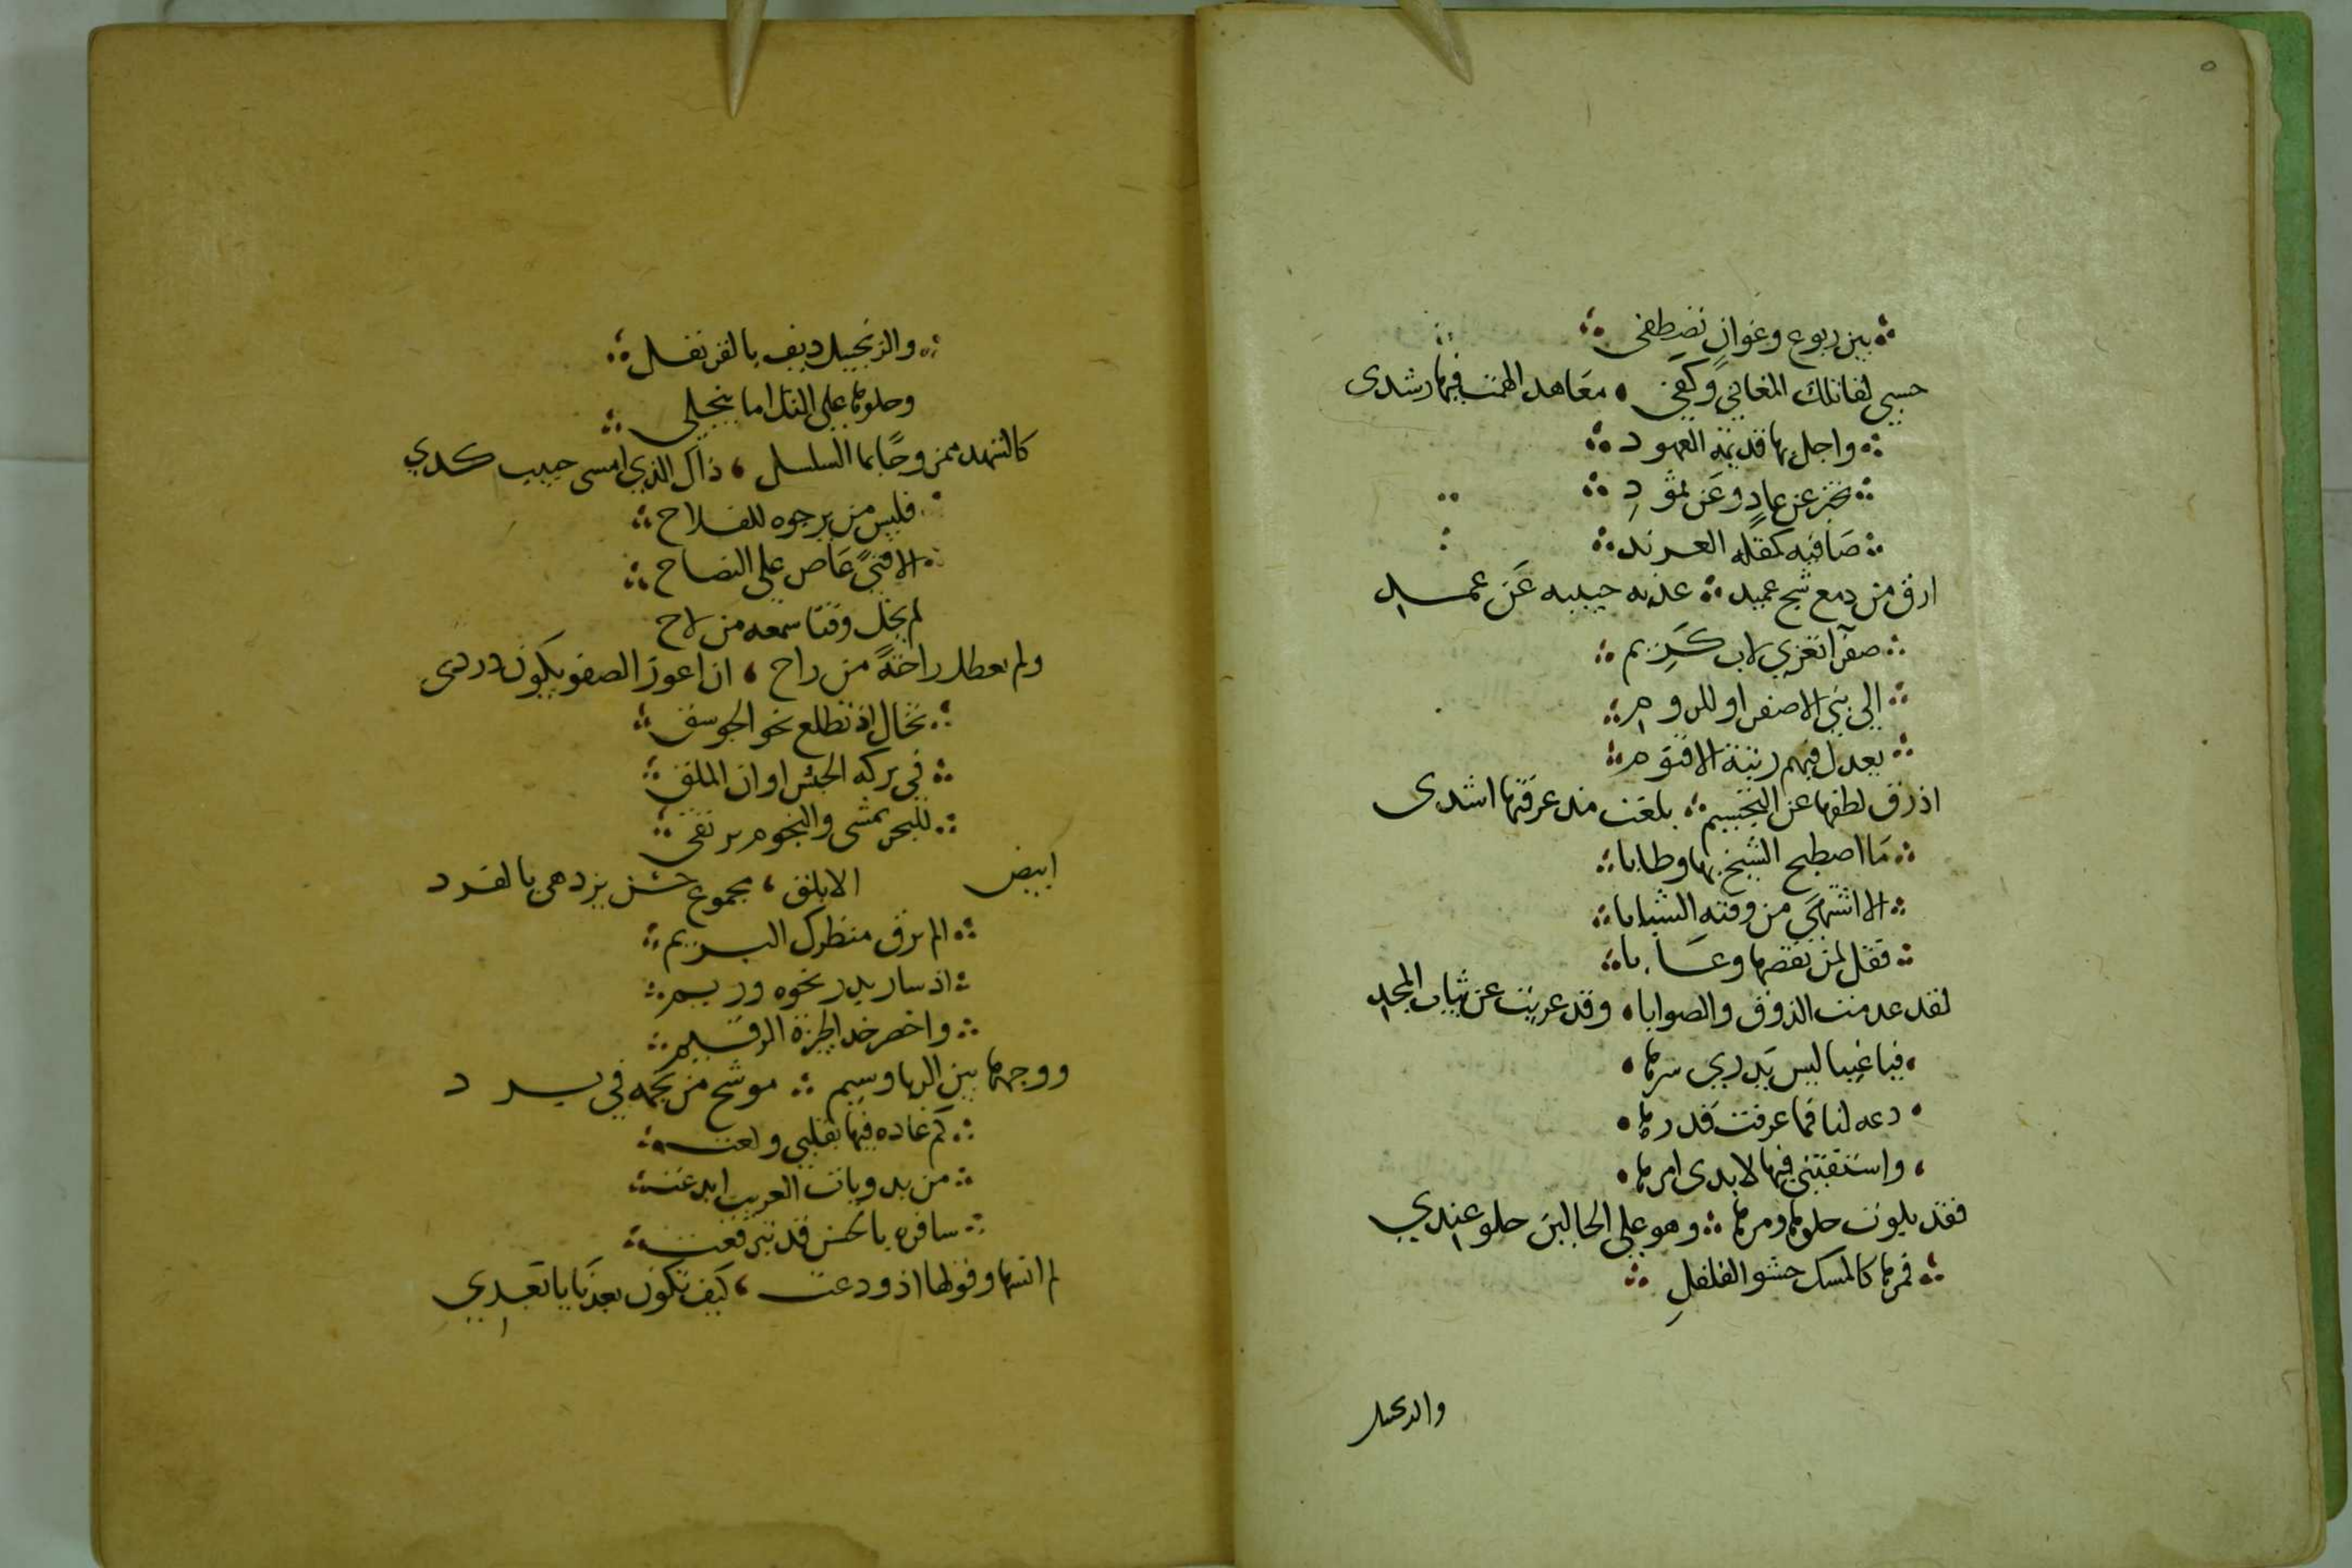 ٥
بين ربوع وغوانٍ نصطفى
حسبي لفا تلك المغاني وكفى معاهد الهمت فيها رشدى
واجل بها قديمة العهود
تخبر عن عادٍ وعن ثمودِ
صافيه كمقلة
ارق من دمع شج عميد حبيبه عن عمد
صفرا تعزي لاب كريم
الى بني الاصفر او للروم
يعدل فيهم رتبة الاقنوم
اذ رق لطفها عن التجسيم بلغت مذ عرفتها اشدى
ما اصطبح الشيخ بها وطابا
الا اشتهى من وقته الشبابا
فقل لمن نقصها وعابا
لقد عدمت الذوق والصوابا وقد عريت عن ثياب المجد
فيا غبيا ليس يدري سرها
دعه لنا فما عرفت قدرها
واستفتني فيها لابدى امرها
فقد بلوت حلوها ومرها وهو على الحالين حلو عندي
فمرها كالمسك حشو الفلفلِ
والزنجبيل
والزنجبيل ديف بالقرنفل
وحلوها على اما ينجلى
كالشهد ممزوجًا بما السلسل ذاك الذي امسى حبيب كبدي
فليس من يرجوه للفلاح
الا فتىً عاص على النصاح
لم يخل وقتا سمعه من لاح
ولم يعطل راحةً من راح ان اعوز الصفو يكون دردى
تخال اذ تطلع نحو الجوسق
في بركه الحبش اوان الملق
للبحر تمشى والنجوم ترتقى
ابيض الابلق مجموع حسن يزدهى بالفرد
الم ترق منظرك البريم
اذ سار بدر نحوه وريم
واخضر خد الجيزة الرقيم
ووجهها بين الربا وسيم موشح من نجمه في برد
كم غاده فيها بقلبي ولعت
من بدويات العريب ابدعت
سافره بالحسن قد تبرقعت
لم انسها وقولها اذ ودعت كيف تكون بعدنا يا بعدي